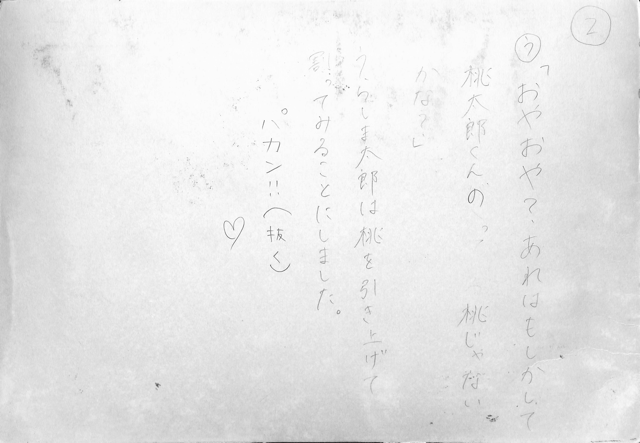 2
う「おやおや?あれはもしかして
桃太郎くんの 桃じゃない
かな?」
うらしま太郎は桃を引き上げて
割ってみることにしました。
パカン!!(抜く)